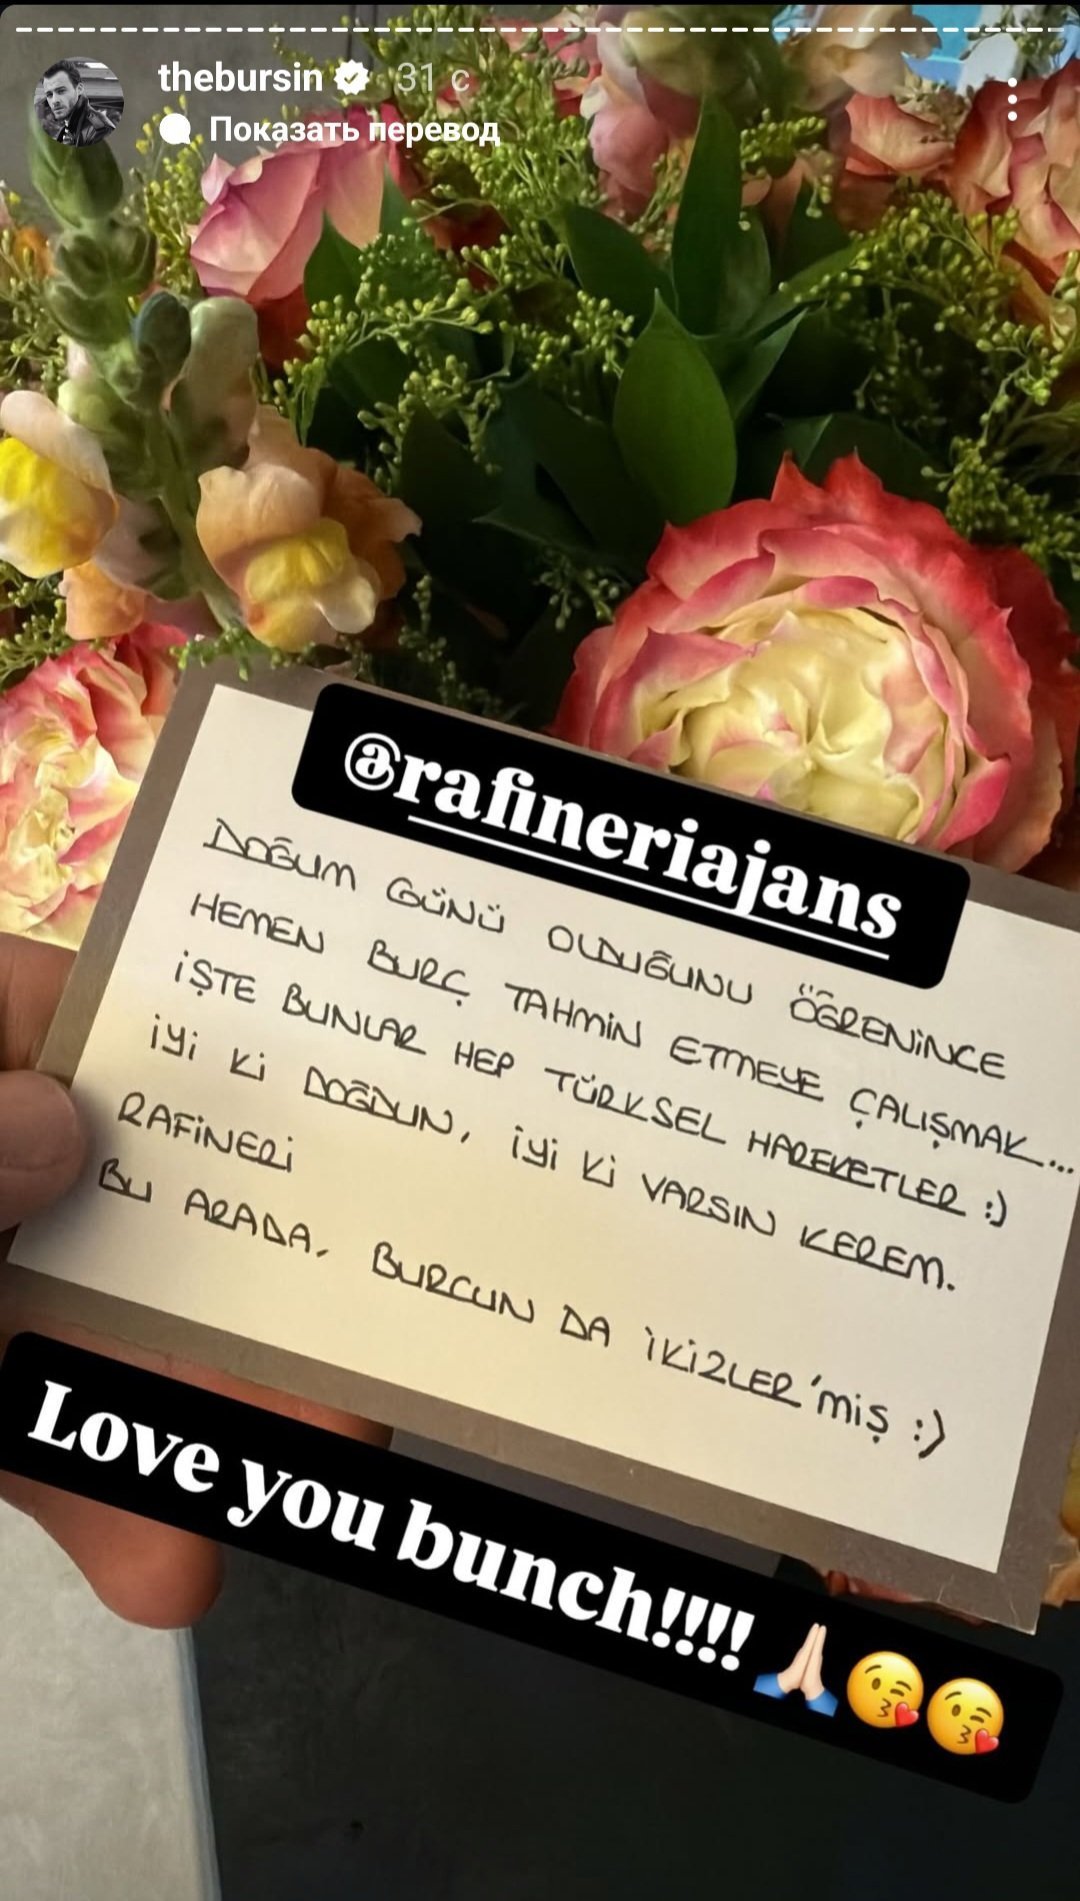 thebursin 31 с
Показать перевод
@rafineriajans
DOĞUM GÜNÜ OLDUĞUNU ÖĞRENİNCE
HEMEN BURÇ TAHMİN ETMEYE ÇALIŞMAK...
İŞTE BUNLAR HEP TÜRKSEL HAREKETLER :)
İYİ Kİ DOĞDUN, İYİ Kİ VARSIN KEREM.
RAFİNERİ
BU ARADA, BURCUN DA İKİZLER'MİŞ :)
Love you bunch!!!! 🙏🏻😘😘